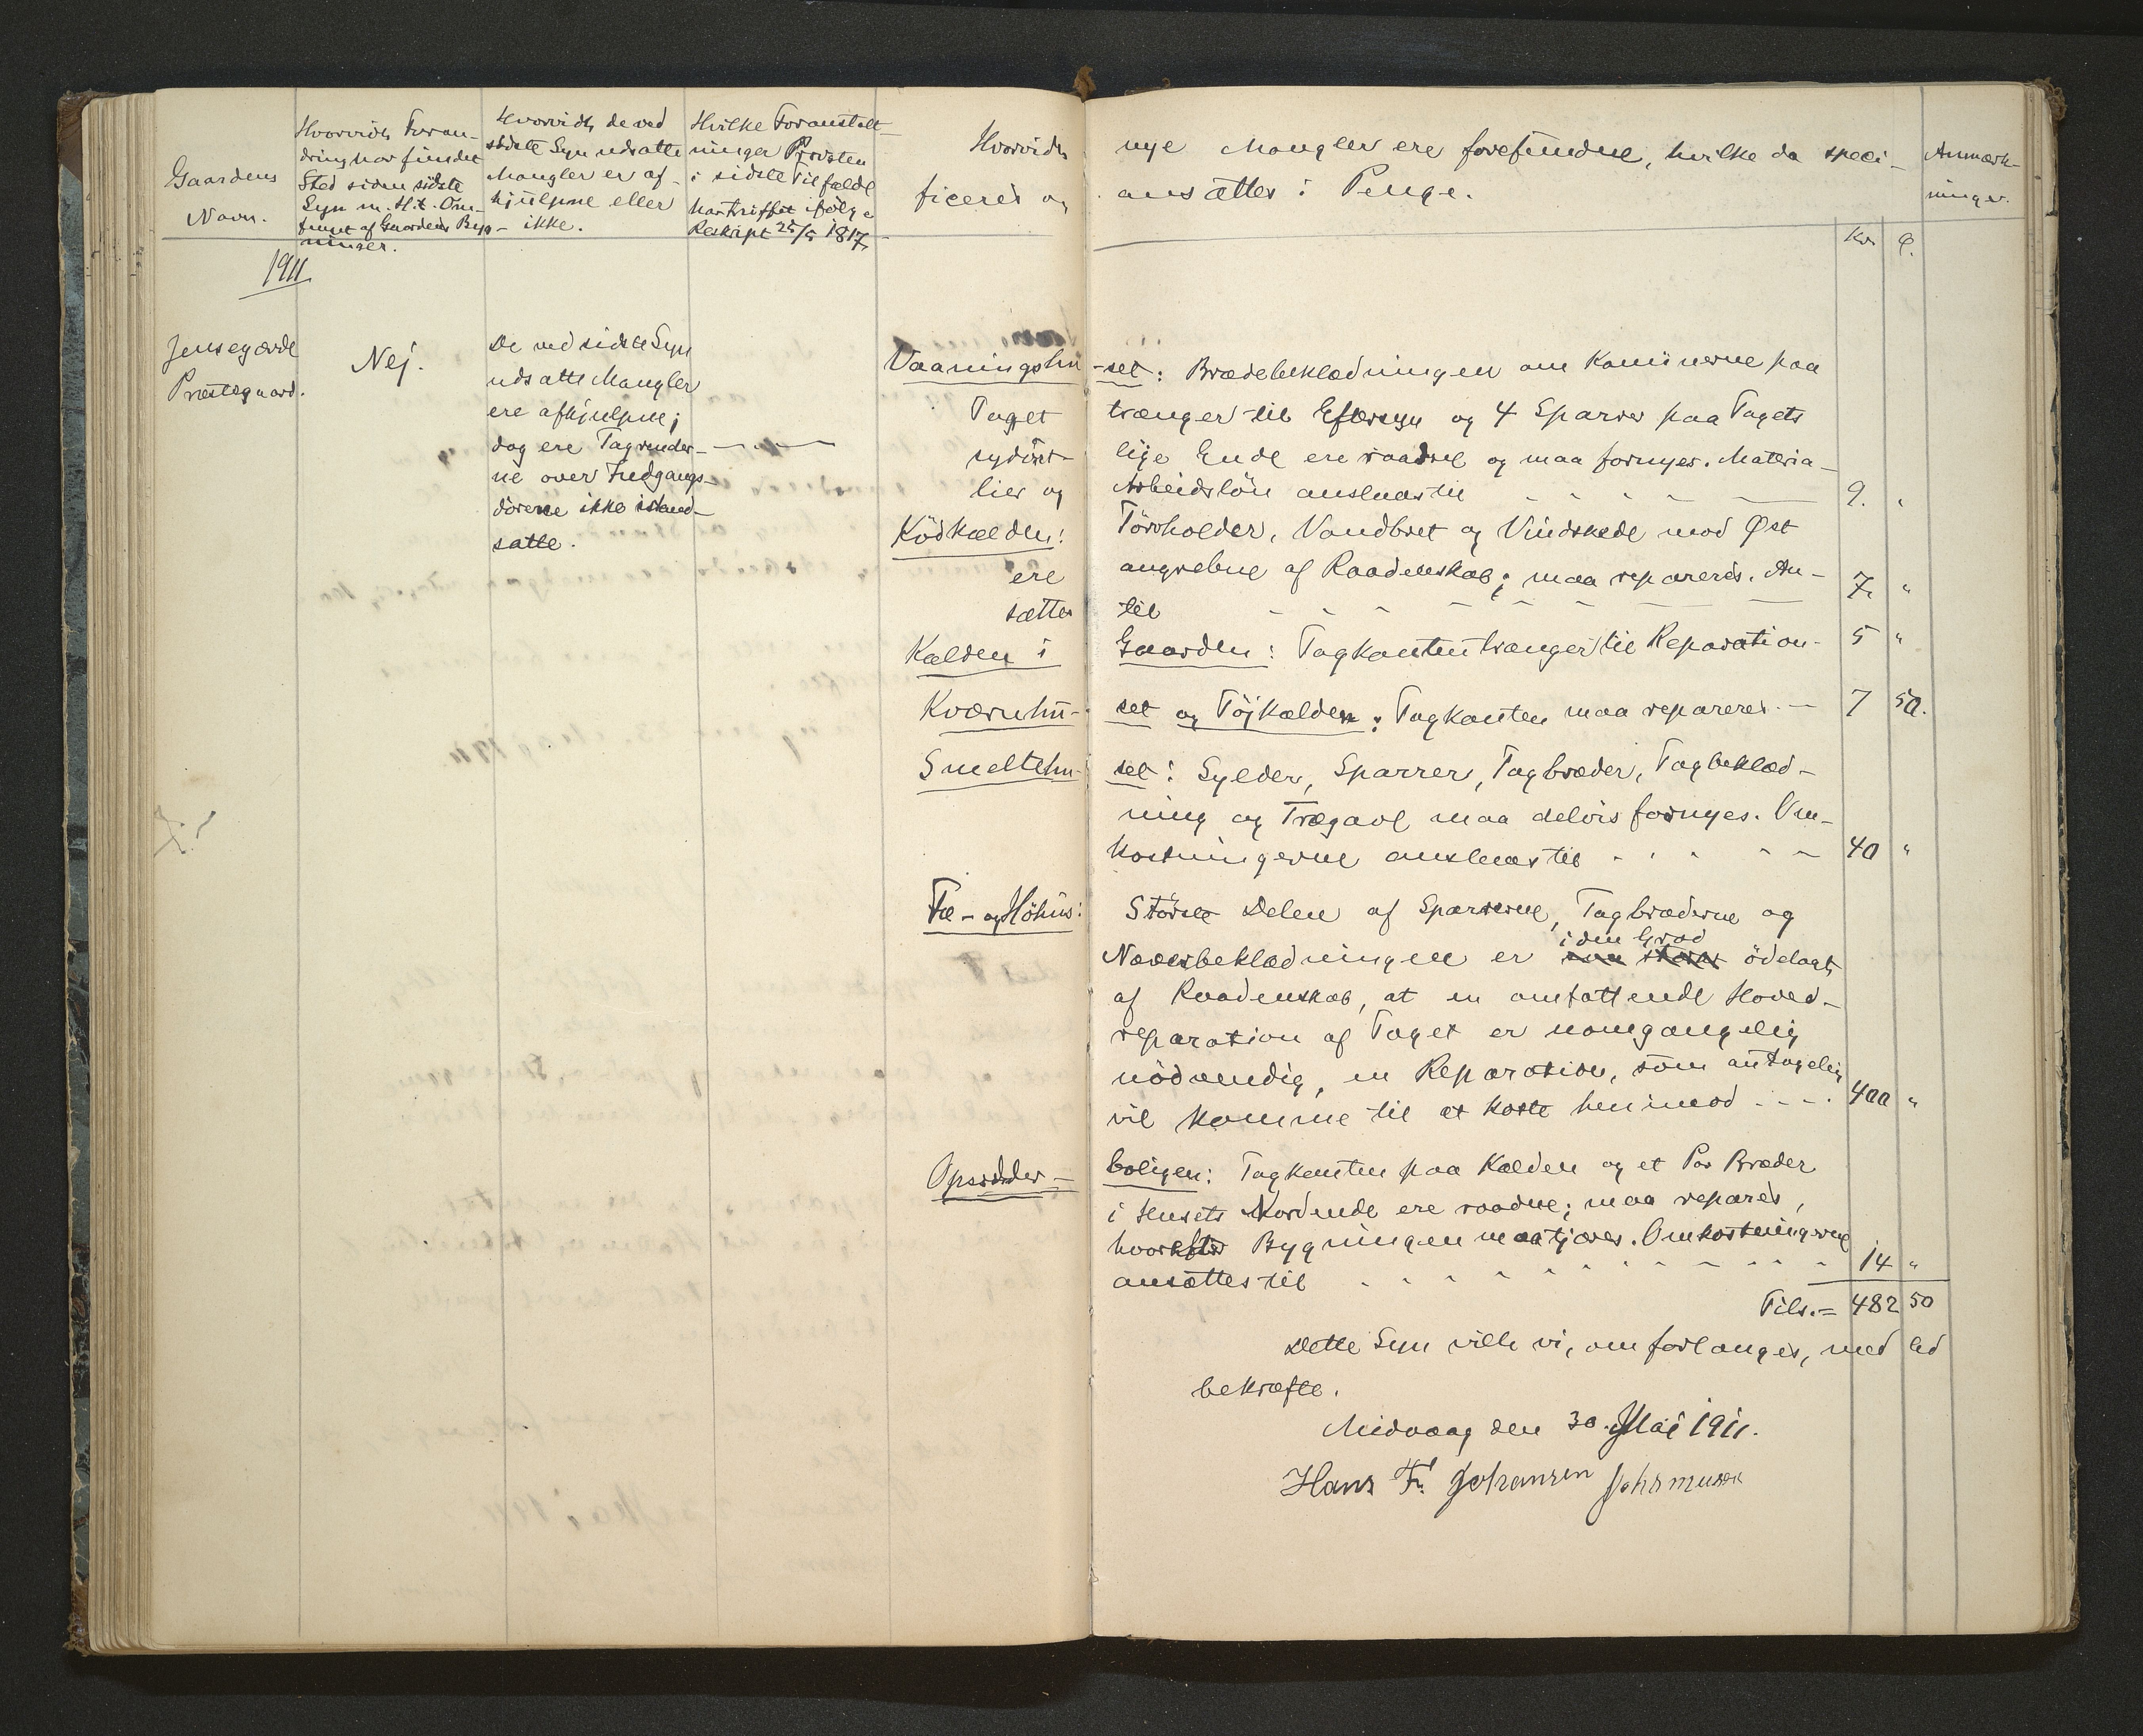 Gaardens
Navn.
Hvorvidt Foran-
dring har fundet
Sted siden sidste
Syn m. H. t. Om-
fanget af Gaardens Byg-
ninger.
Hvorvidt de ved
sidste Syn udsatte
Mangler er af-
hjulpne eller
ikke.
Hvilke Foranstalt-
ninger Provsten
i sidste Tilfælde
har truffet ifølge
Reskript 25/5 1817.
Hvorvidt nye Mangler ere forefundne, hvilke da speci-
ficeres og ansættes i Penge.
Anmærk-
ninger.
Kr. Ø.
1911.
Jensegærde
Præstegaard.
Nej.
De ved sidste Syn
udsatte Mangler
ere afhjulpne;
dog ere Tagrender-
ne over Indgangs-
dörene ikke istand-
satte.
Vaaningshu-set: Brædebeklædningen om Kaminerne paa
Taget trænger til Eftersyn og 4 Sparrer paa Tagets
sydöst-lige Ende ere raadne og maa fornyes. Materia-
lier og Arbeidslön anslaas til 9. "
Ködkælden: Törvholder, Vandbret og Vindskede mod Øst
ere angrebne af Raadenskab; maa repareres. An-
sættes til 7. "
Kælden i Gaarden: Tagkanten trænger til Reparation- 5 "
Kværnhu-set og Töjkælden: Tagkanten maa repareres. — 7 50.
Smeltehu-set: Sylder, Sparrer, Tagbræder, Tagbeklæd-
ning og Trægavl maa delvis fornyes. Om-
kostningerne anslaas til 40 "
Fæ- og Höhus: Störste Delen af Sparrerne, Tagbræderne og
Næverbeklædningen er i den Grad ödelagt
af Raadenskab, at en omfattende Hoved-
reparation af Taget er uomgængelig
nödvendig, en Reparation, som antagelig
vil komme til at koste henimod - - - . 400 "
Opsidder-boligen: Tagkanten paa Kælden og et Par Bræder
i Husets Nordende ere raadne; maa repares,
hvorefter Bygningen maa tjæres. Omkostningerne
ansættes til 14 "
Tils. = 482 50
Dette Syn ville vi, om forlanges, med Ed
bekræfte.
Midvaag den 30. Mai 1911.
Hans Fr. Johansen